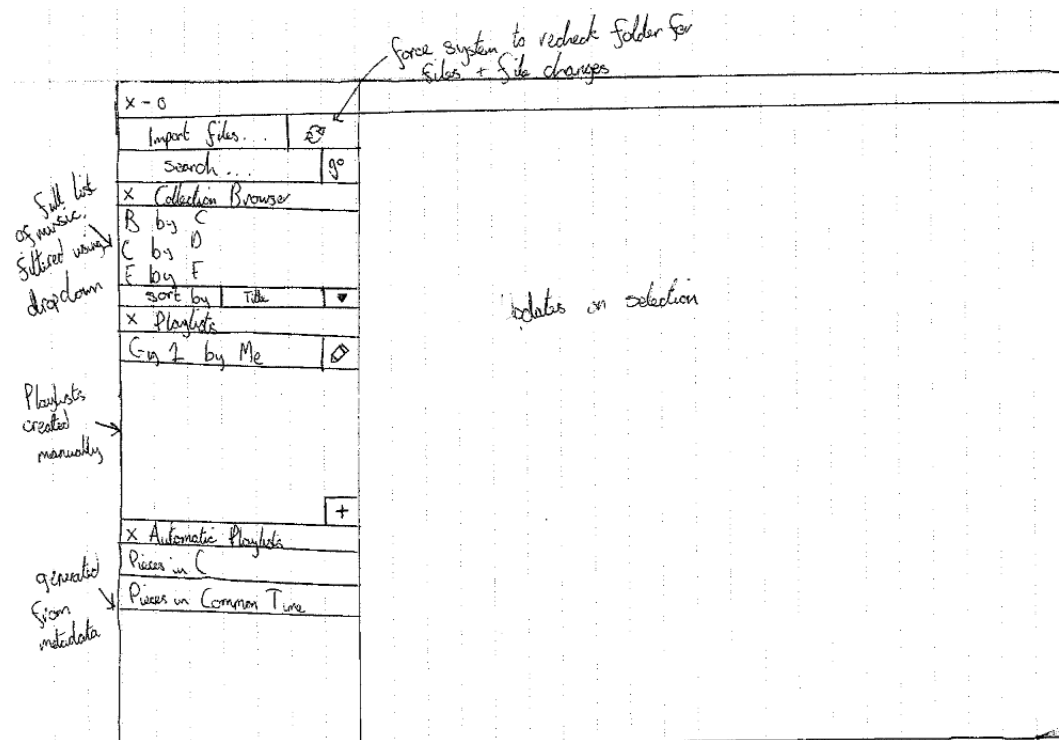 force system to recheck folder for
files + file changes
x - o
Import files...
search ...
go
x Collection Browser
full list
of music.
filtered using
dropdown
B by C
C by D
E by F
sort by Title
x Playlists
by Me
Playlists
created
manually
+
x Automatic Playlists
Pieces in C
Pieces in Common Time
generated
from
metadata
updates on selection